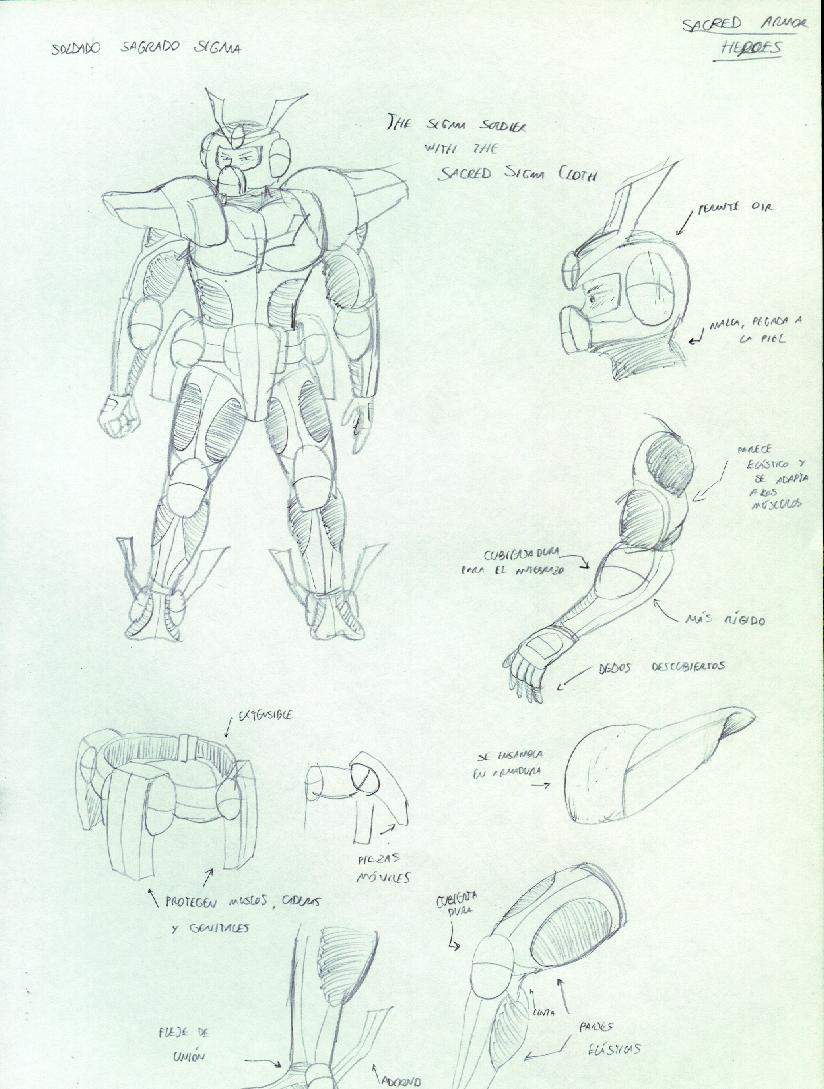 SOLDADO SAGRADO SIGMA
SACRED ARMOR
HEROES
THE SIGMA SOLDIER
WITH THE
SACRED SIGMA CLOTH
PERMITE OIR
MALLA, PEGADA A
LA PIEL
PARECE
ELÁSTICO Y
SE ADAPTA
A LOS
MÚSCULOS
CUBIERTA DURA
PARA EL ANTEBRAZO
MÁS RÍGIDO
DEDOS DESCUBIERTOS
EXTENSIBLE
SE ENSAMBLA
EN ARMADURA
PIEZAS
MÓVILES
PROTEGEN MUSLOS, CADERAS
Y GENITALES
CUBIERTA
DURA
JUNTA
PARTES
ELÁSTICAS
FLEJE DE
UNIÓN
ADORNO